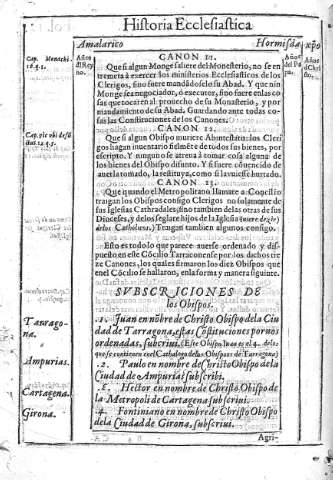 Historia Ecclesiastica
Amalarico Hormisda xpo
Años del Reyno. Años del Papa. Años de Christo.
CANON 11.
Cap. Monachi. 16.q.1.
Que si algun Monge saliere del Monesterio, no se en
tremeta à exercer los ministerios Ecclesiasticos de los
Clerigos, sino fuere mandãdoselo su Abad. Y que nin
Monge sea negociador, ò executor, sino fuere en las co
sas que tocaren al prouecho de su Monasterio, y por
mandamiento de su Abad. Guardando ante todas co
sas las Constituciones de los Canones.
CANON 12.
Que si algun Obispo muriere Abintestato: los Cleri
gos hagan inuentario fielmẽte de todos sus bienes, por
escripto. Y ninguno se atreua à tomar cosa alguna de
los bienes del Obispo difunto. Y si fuere cõuencido de
auerla tomado, la restituya, como si la vuiesse hurtado.
CANON 13.
Que quando el Metropolitano llamare a Concilio
traigan los Obispos consigo Clerigos no solamente de
sus Iglesias Cathedrales, sino tambien de las otras de sus
Dioceses, y de los seglares hijos de la Iglesia (quiere dezir
de los Catholicos,) Traigan tambien algunos consigo.
Esto es todo lo que parece auerse ordenado y dis
puesto en este Cõcilio Tarraconense por los dichos tre
ze Canones, los quales firmaron los diez Obispos que
en el Cõcilio se hallaron, en la forma y manera siguiente.
SVBSCRICIONES DE
los Obispos.
Tarragona.
.1. Iuan en nõbre de Christo Obispo de la Ciu
dad de Tarragona, estas Constituciones por nos
ordenadas, subcriui. (Este Obispo Iuan es el 4. de los
que se contienen en el Cathalogo de los Obispos de Tarragona)
Ampurias.
.2. Paulo en nombre de Christo Obispo de la
Ciudad de Ampurias subscribi.
Cartagena.
Hector en nombre de Christo, Obispo de
la Metropoli de Cartagena subscriui.
Girona.
4. Fontiniano en nombre de Christo Obispo
de la Ciudad de Girona, subscriui.
Agri-